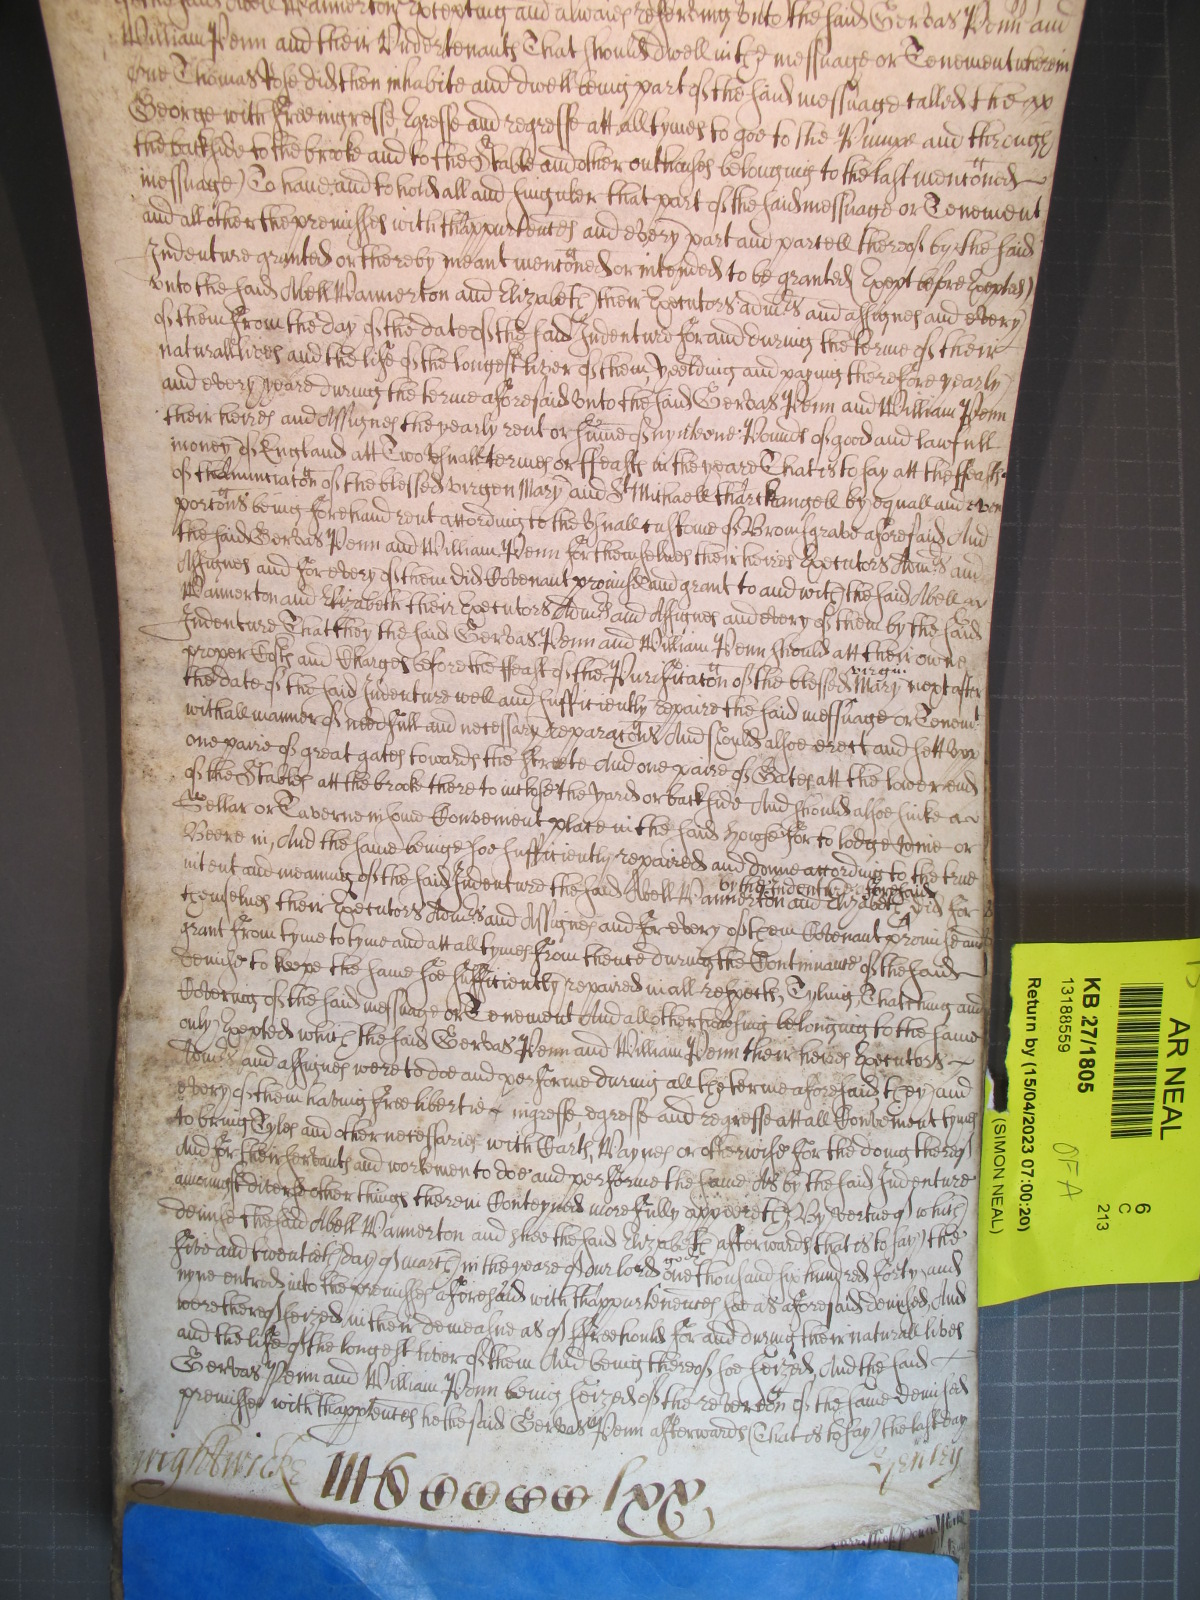 of the said Abell Wannerton, Excepting and alwaies reserving unto the said Gervas Penn and
William Penn and their Undertenants That should dwell in the messuage or Tenement wherein
one Thomas did then inhabite and dwell being part of the said messuage called the
George with free ingresse, Egresse and regresse att all tymes to goe to the Pumpe and through
the backside to the brooke and to the Stable and other outhouses belonging to the last menconed
messuage) To have and to hold all and singuler that part of the said messuage or Tenement
and all other the premisses with thappurtences and every part and parcell thereof by the said
Indenture granted or thereby meant menconed or intended to be granted (Except before Excepted)
unto the said Abell Wannerton and Elizabeth their Executors Admrs and assignes and every
of them from the day of the date of the said Indenture for and during the terme of their
naturall lives and the life of the longest liver of them, Yeelding and paying therefore yearly
and every yeare during the terme aforesaid unto the said Gervas Penn and William Penn
their heires and Assignes the yearly rent or summe of nyneteene Pounds of good and lawfull
money of England att Two usuall termes or ffeasts in the yeare That is to say att the ffeasts
of thannunciacon of the blessed virgen Mary and St Michaell tharchangell by equall and even
porcons being forehand rent according to the usuall custome of Bromsgrave aforesaid And
the said Gervas Penn and William Penn for themselves their heires Executors Admrs and
Assignes and for every of them did Covenant promise and grant to and with the said Abell
Wannerton and Elizabeth their Executors Admrs and Assignes and every of them by the said
Indenture That they the said Gervas Penn and William Penn should att their owne
proper Costs and Charges before the ffeast of the Purificacon of the blessed virgin Mary next after
the date of the said Indenture well and sufficiently repaire the said messuage or Tenemt
with all manner of needfull and necessary reparacons And should alsoe erect and sett upp
one paire of great gates towards the streete And one paire of Gates att the lower end
of the Stables att the brooke there to inclose the yard or backside And should alsoe sinke a
Sellar or Taverne in some Convenient place in the said howse for to lodge wine or
Beere in, And the same beinge soe sufficiently repaired and donne according to the true
intent and meaning of the said Indenture the said Abell Wannerton and Elizabeth by the Indenture aforesaid did for
themselves their Executors Admrs and Assignes and for every of them Covenant promise and
grant from tyme to tyme and att all tymes from thence during the Continuance of the said
demise to keepe the same soe sufficiently repaired in all respects, Tyling, Thatching and
Covering of the said messuage or Tenement And all other howsing belonging to the same
only Excepted which the said Gervas Penn and William Penn their heires Executors
Admrs and assignes were to doe and performe during all the terme aforesaid they and
every of them having free libertie of ingresse, egresse and regresse att all Convenient tymes
to bring Tyles and other necessaries with Carts, Waynes or otherwise for the doing thereof
And for their servants and workemen to doe and performe the same As by the said Indenture
amongst diverse other things therein Conteyned more fully appeareth, By vertue of which
demise the said Abell Wannerton and shee the said Elizabeth afterwards that is to say the
five and twentieth day of march in the yeare of our lord god one thousand six hundred forty and
nyne entred into the premisses aforesaid with thappurtenences soe as aforesaid demised, And
were thereof seized in their demeasne as of ffreehould for and during their naturall lives
and the life of the longest liver of them And being thereof soe seized, And the said
Gervas Penn and William Penn being seized of the revercon of the same demised
premisses with thappurtences he the said Gervas Penn afterwards (That is to say) the last day
wightwicke
Henley
AR NEAL
KB 27/1805
13188559
Return by (15/04/2023 07:00:20)
(SIMON NEAL)
6
C
213
OFA